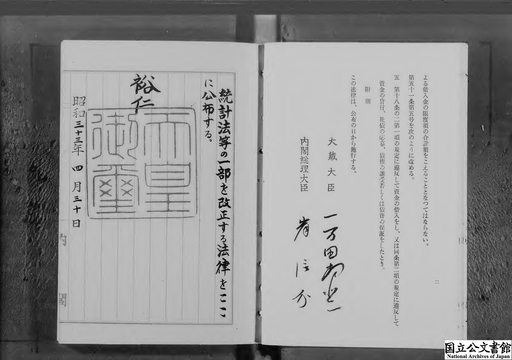 よる借入金の限度額の合計額をこえることとなつてはならない。
第五十一条第五号を次のように改める。
五 第十八条の二第一項の規定に違反して資金の借入をし、又は同条第二項の規定に違反して
資金の貸付、
附則
この法律は、公布の日から施行する。
大蔵大臣 一万田尚登
内閣総理大臣 岸信介
二
統計法等の一部を改正する法律をここ
に公布する。
裕仁
天皇御璽
昭和三十三年四月三十日
内閣
国立公文書館
National Archives of Japan